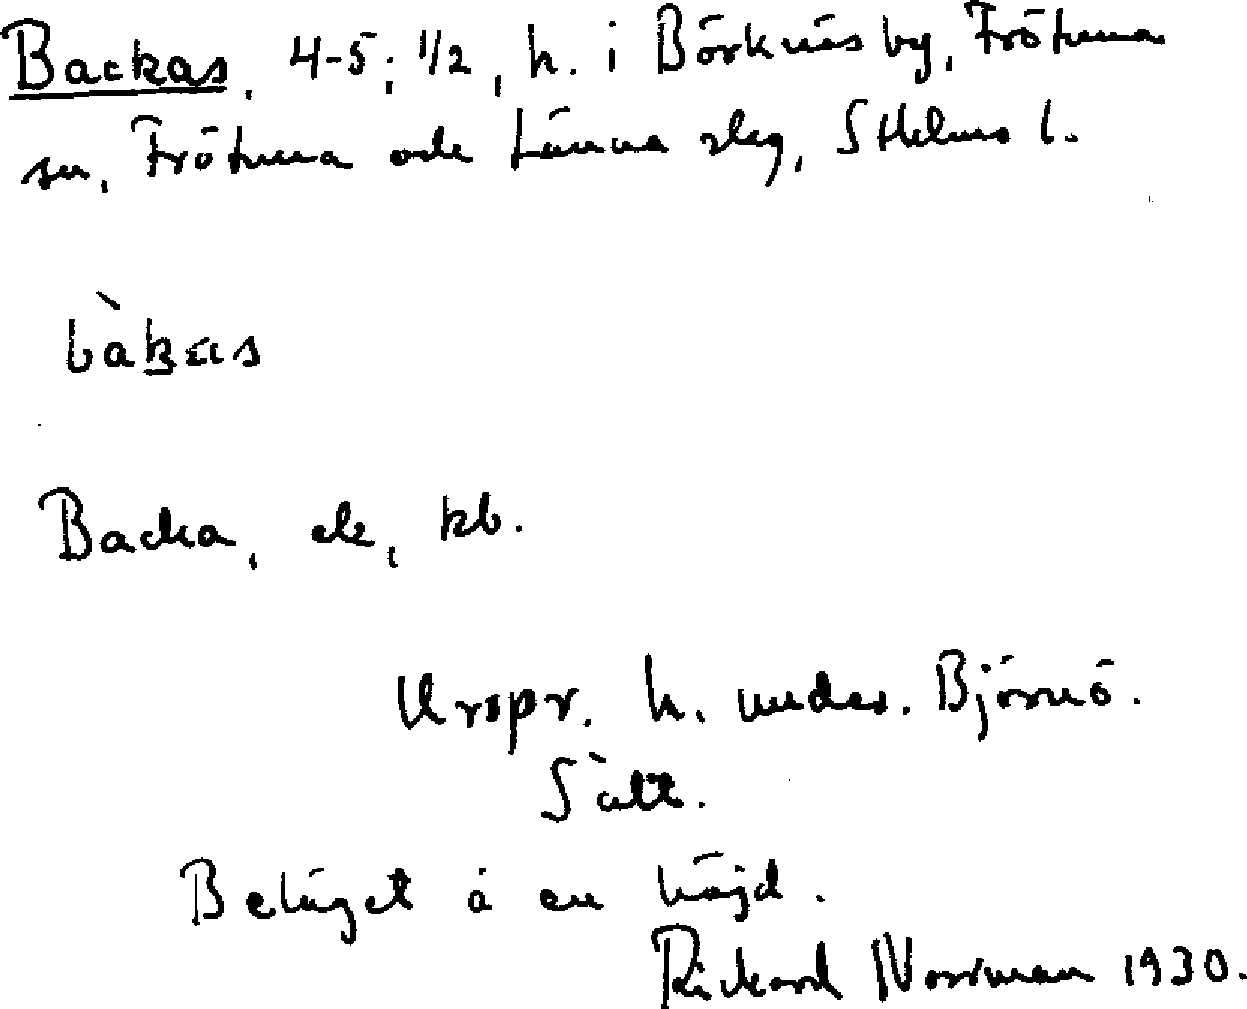 Backas, 4-5; 1/2, h. i Börknäs by, Frötuna
sn, Frötuna och Länna slag, Sthlms l.
bàkas
Backa, ek, kb.
Urspr. h. under Björnö.
Sätt.
Beläget å en höjd.
Rickard Norrman 1930.